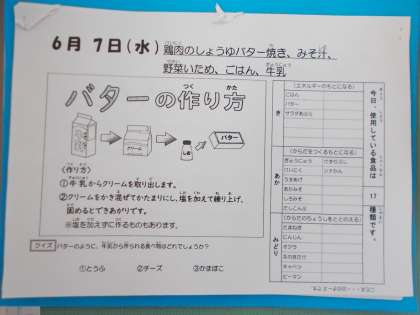 6月7日(水) 鶏肉のしょうゆバター焼き、みそ汁、
野菜いため、ごはん、牛乳
バターの作り方
クリーム
しお
バター
〈作り方〉
①牛乳からクリームを取り出します。
②クリームをかき混ぜてかたまりにし、塩を加えて練り上げ、
固めるとできあがりです。
※塩を加えずに作るものもあります。
クイズ バターのように、牛乳から作られる食べ物はどれでしょうか?
①とうふ ②チーズ ③かまぼこ
今日、使用している食品は
17
種類です。
き
(エネルギーのもとになる)
ごはん
バター
サラダあぶら
あか
(からだをつくるもとになる)
ぎゅうにゅう
けいにく
わかめ
(からだのちょうしをととのえる)
みどり
たまねぎ
にんじん
キャベツ
ピーマン